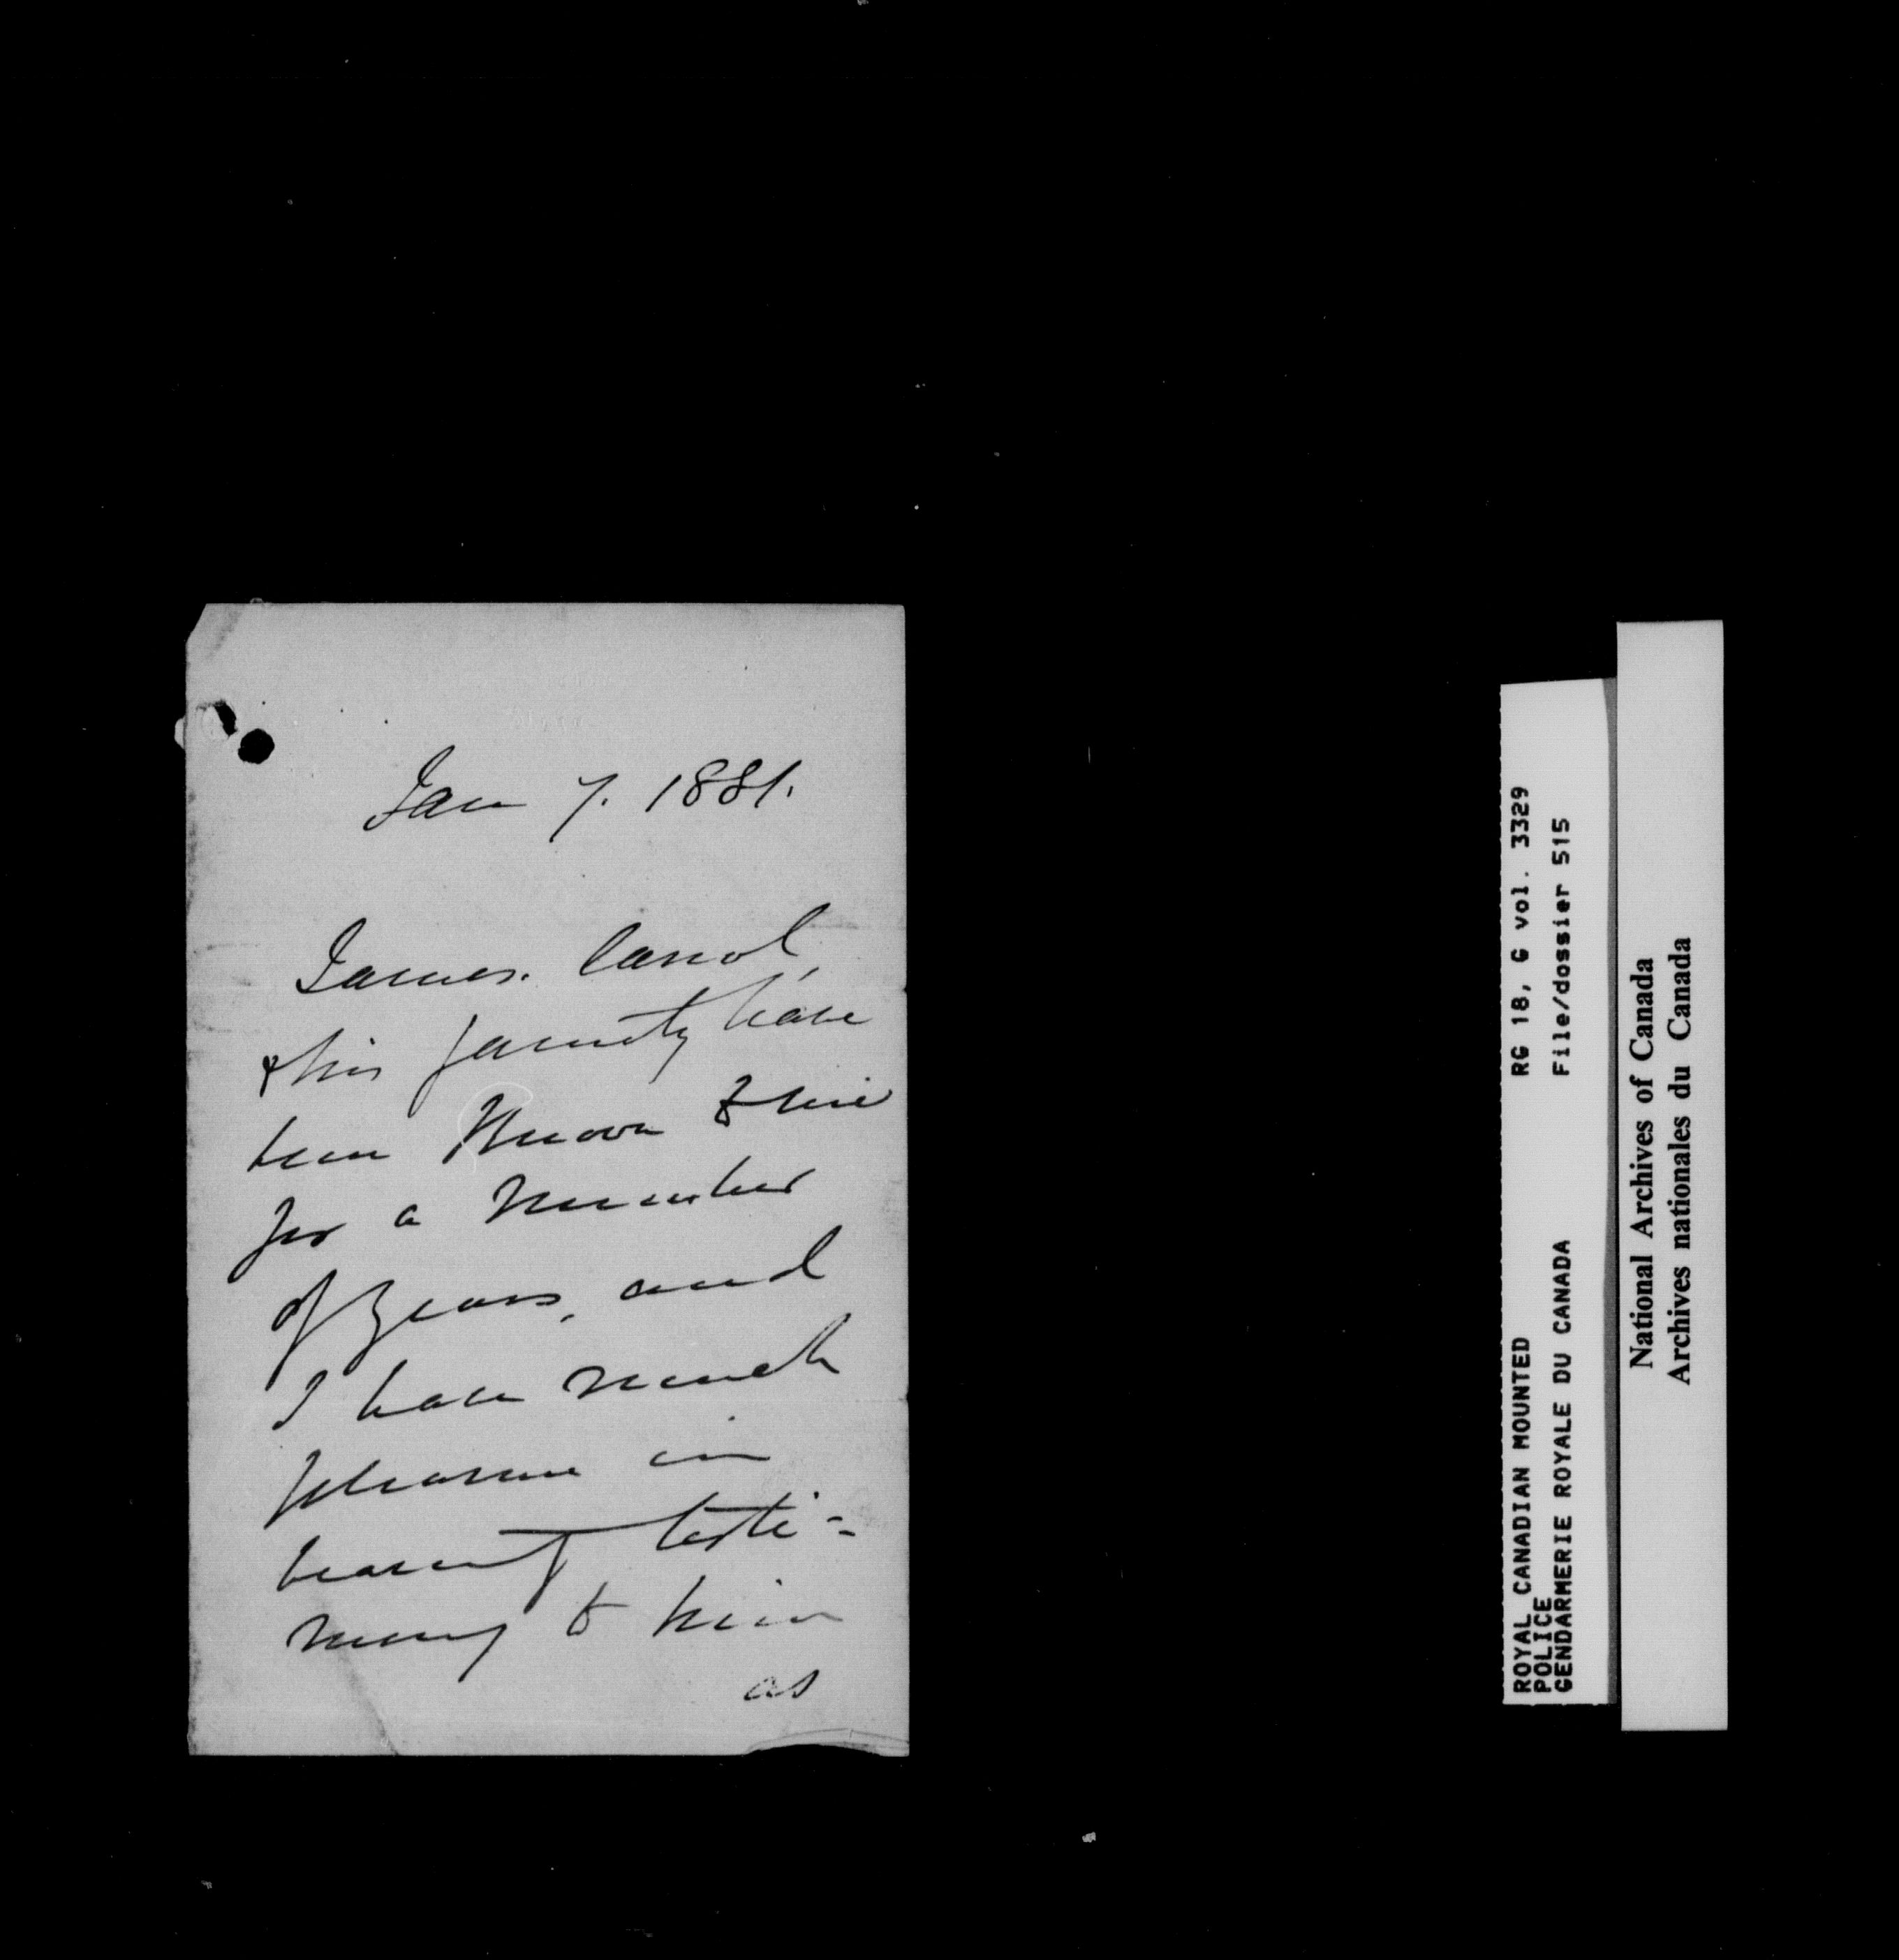 Jan 7. 1881.
James. Carrol,
& his family have
been known to me
for a number
of years, and
I have much
pleasure in
bearing testi-
mony to him
as
ROYAL CANADIAN MOUNTED RG 18, G vol. 3329
POLICE
GENDARMERIE ROYALE DU CANADA File/dossier 515
National Archives of Canada
Archives nationales du Canada